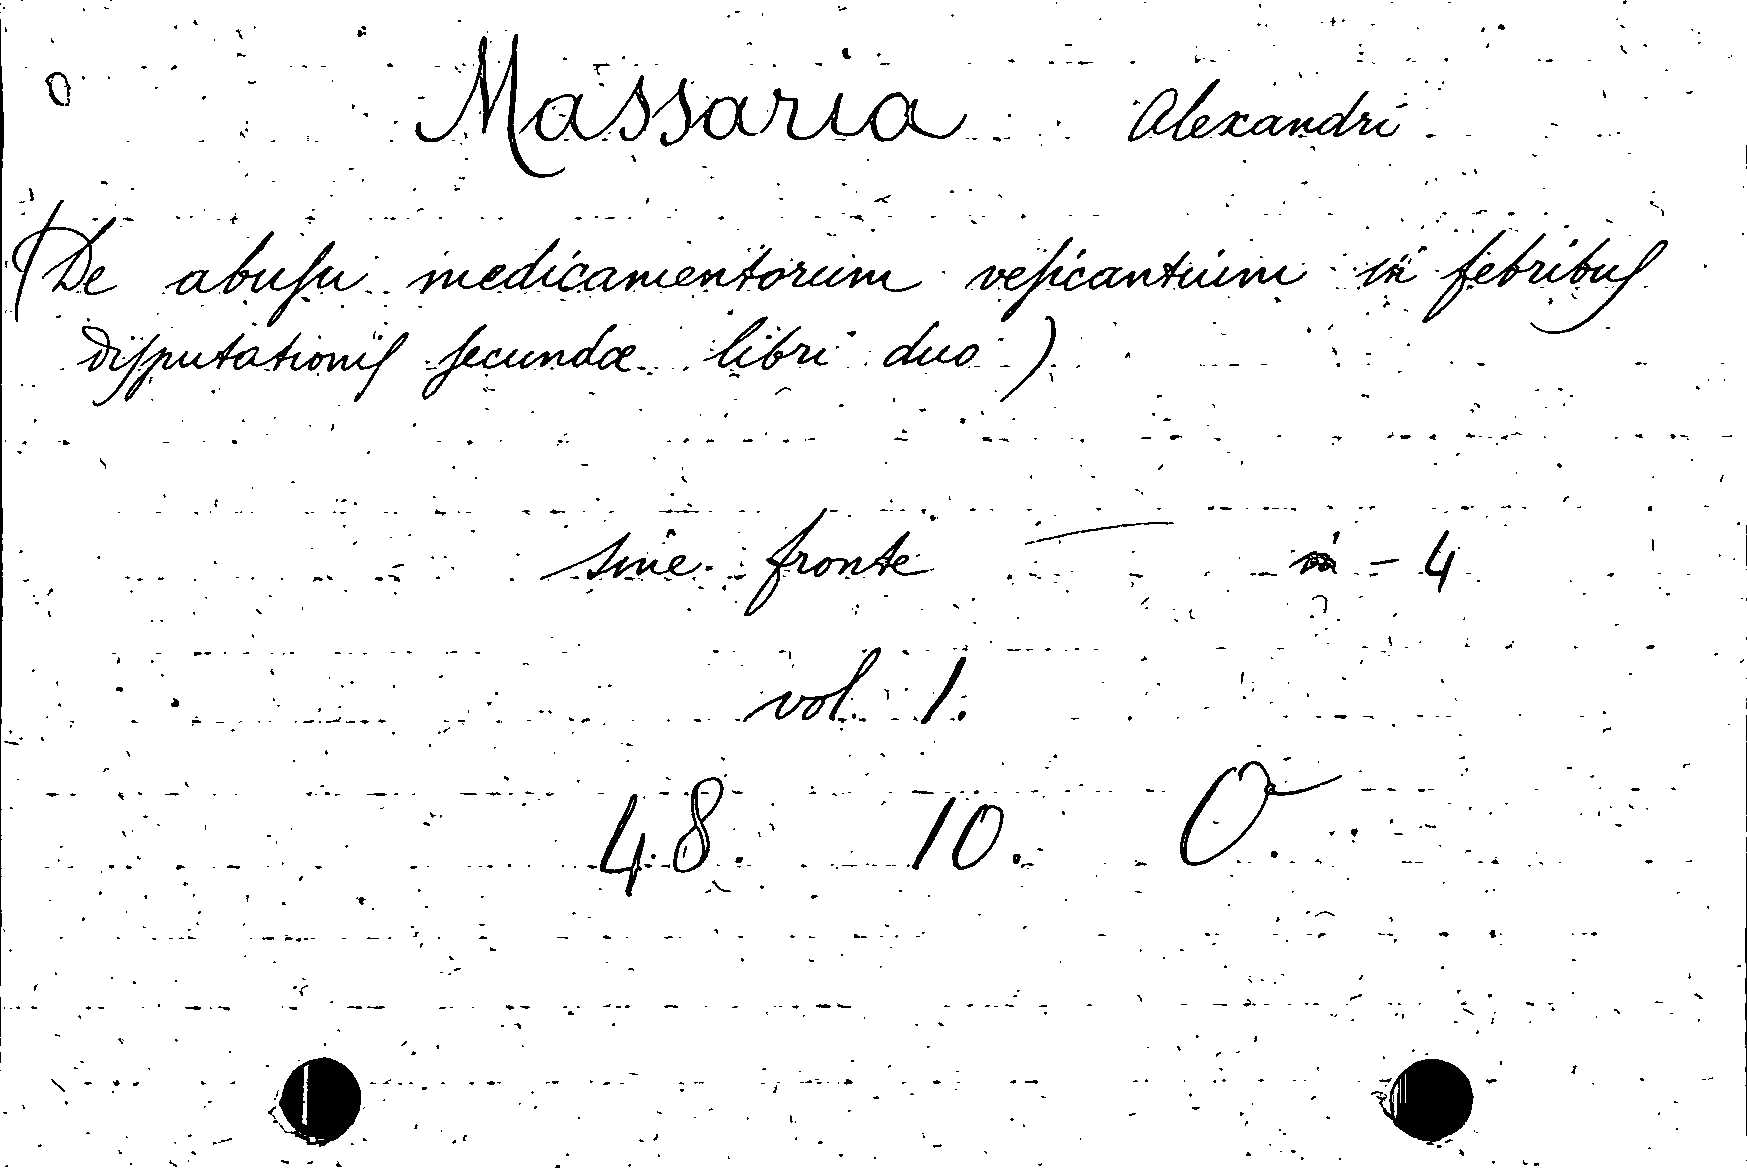 O Massaria Alexandri
(De abuſu medicamentorum veſicantium in febribuſ
diſputationiſ ſecundæ libri duo)
sine fronte — in - 4
vol. 1.
48. 10. O.